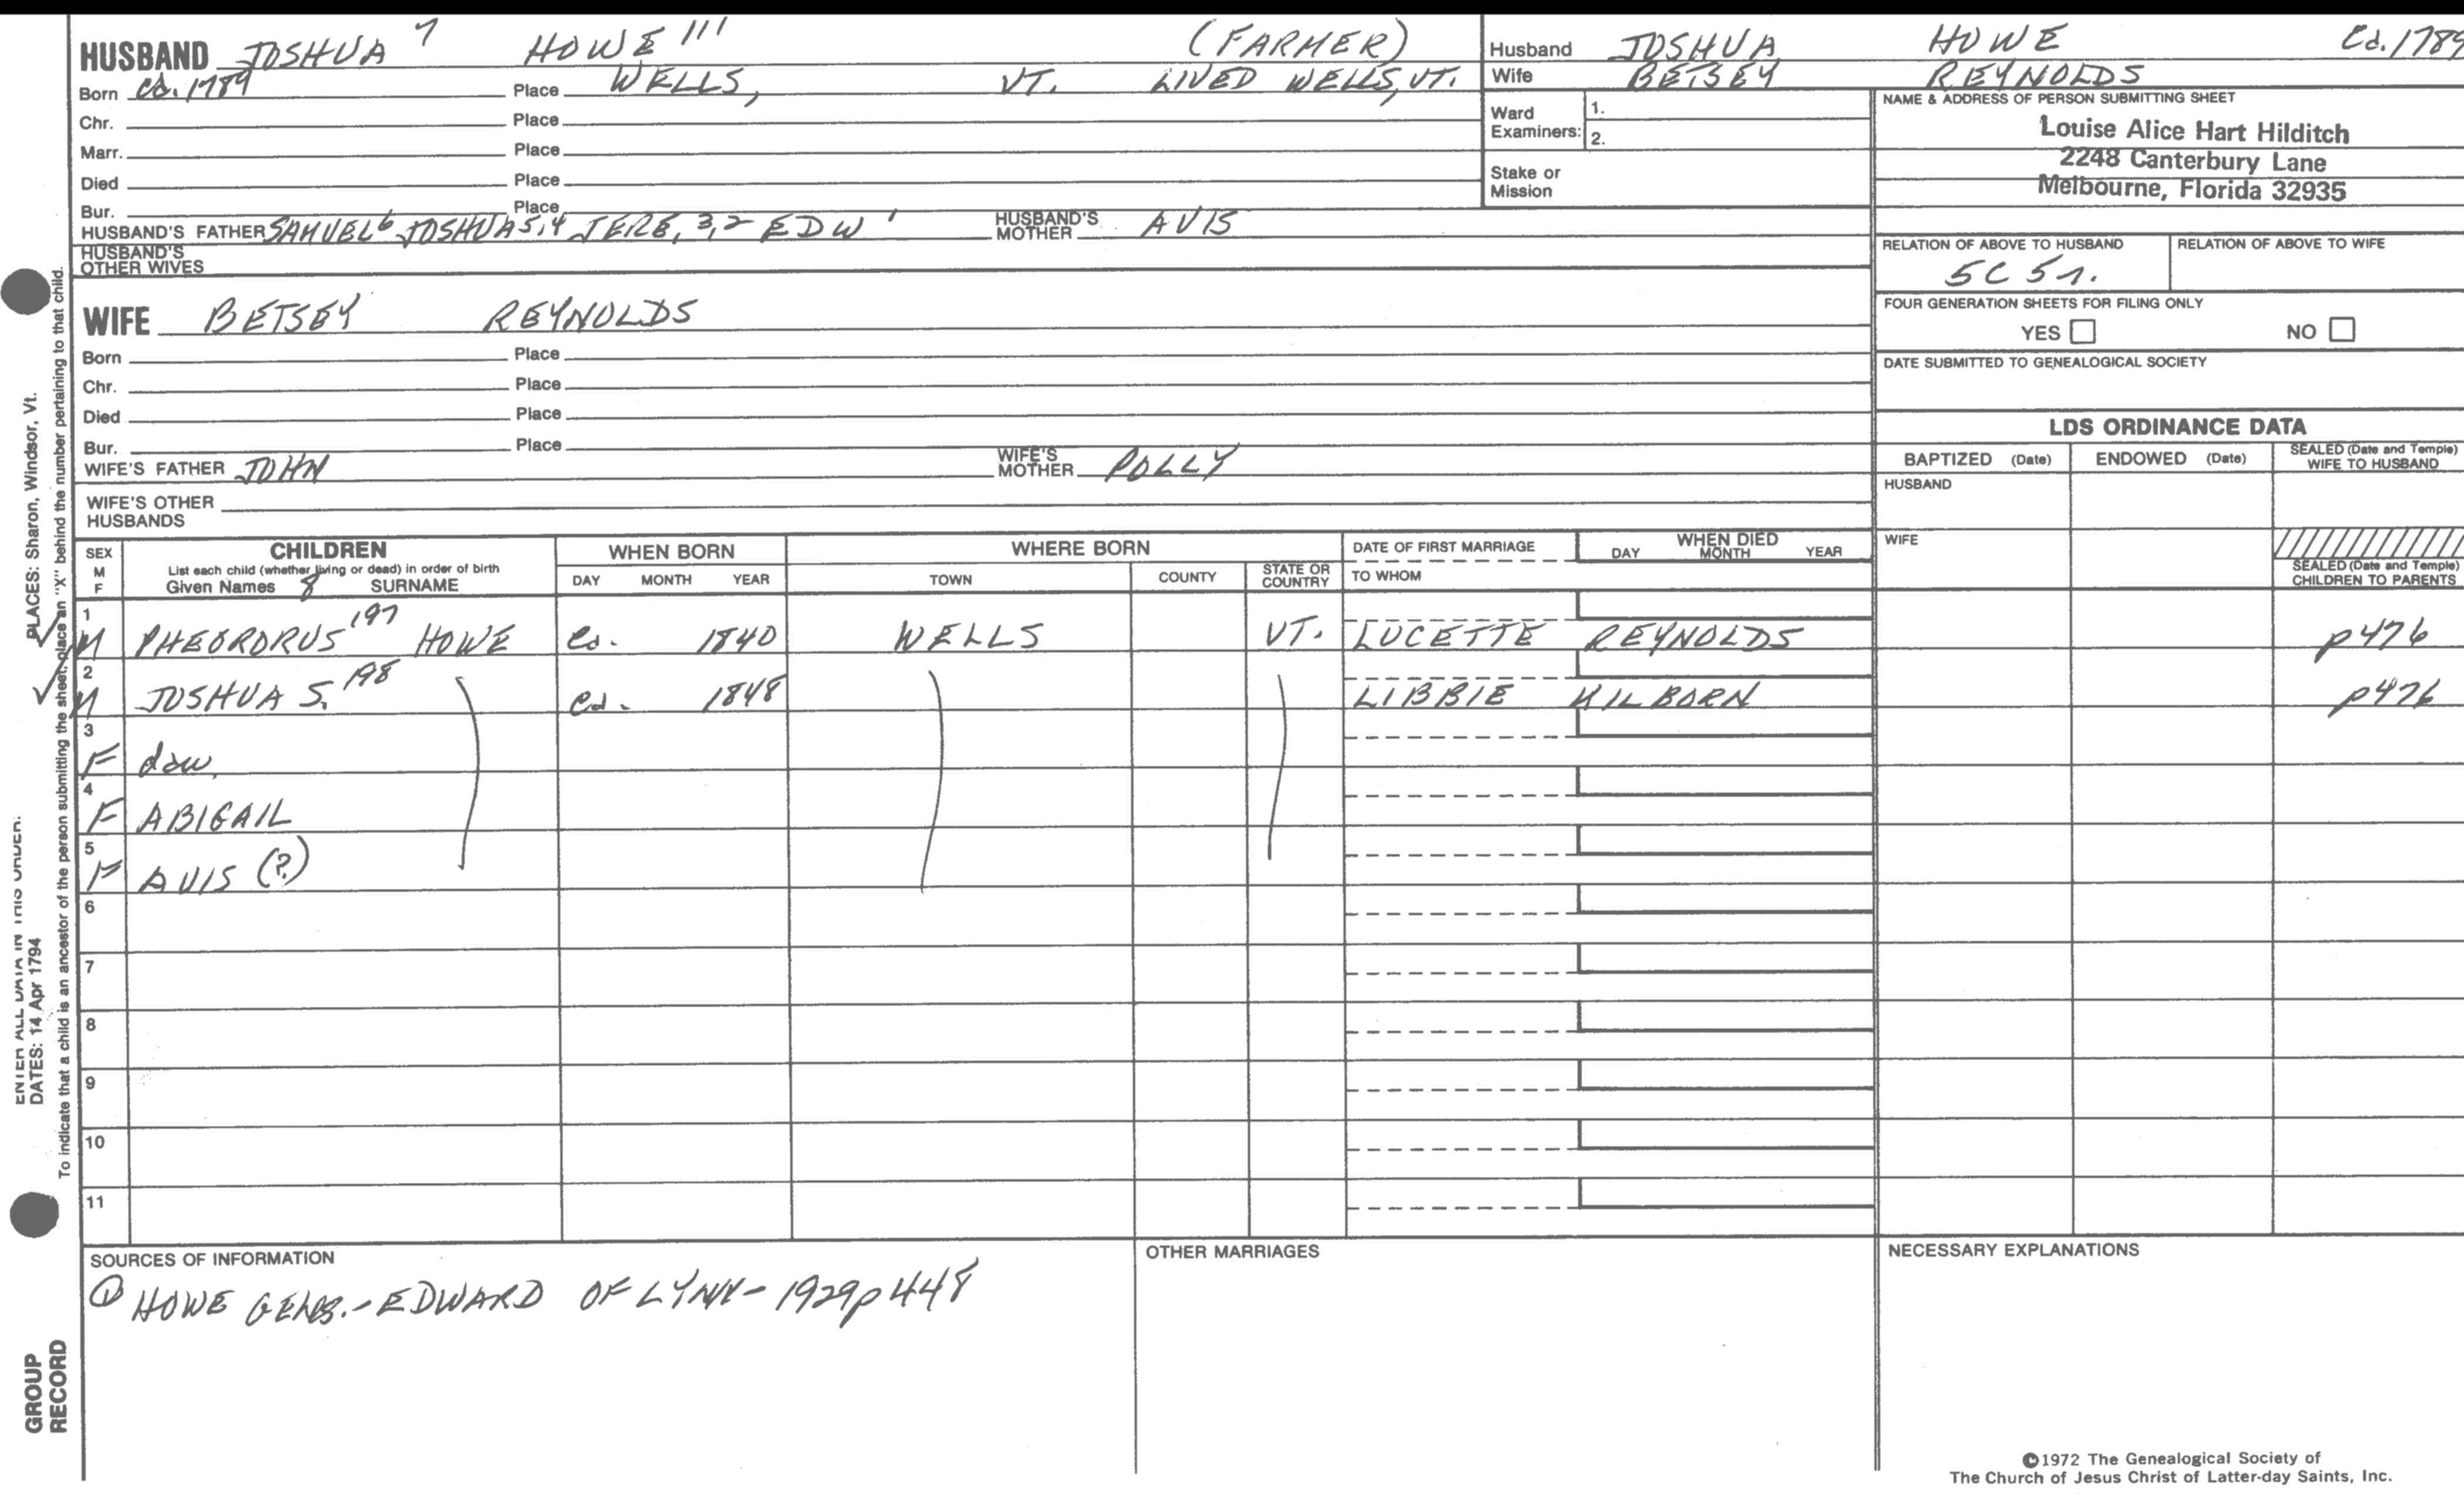 HUSBAND JOSHUA 7 HOWE 111 (FARMER)
Born ca. 1789 Place WELLS, VT. LIVED WELLS, VT.
Chr. Place
Marr. Place
Died Place
Bur. Place
HUSBAND'S FATHER SAMUEL 6 JOSHUA 5,4 JERE, 3,2 EDW 1 HUSBAND'S MOTHER AVIS
HUSBAND'S OTHER WIVES
WIFE BETSEY REYNOLDS
Born Place
Chr. Place
Died Place
Bur. Place
WIFE'S FATHER JOHN WIFE'S MOTHER POLLY
WIFE'S OTHER HUSBANDS
Husband JOSHUA HOWE Ca. 1789
Wife BETSEY REYNOLDS
Ward Examiners: 1.
2.
Stake or Mission
NAME & ADDRESS OF PERSON SUBMITTING SHEET
Louise Alice Hart Hilditch
2248 Canterbury Lane
Melbourne, Florida 32935
RELATION OF ABOVE TO HUSBAND RELATION OF ABOVE TO WIFE
5C 5r.
FOUR GENERATION SHEETS FOR FILING ONLY
YES NO
DATE SUBMITTED TO GENEALOGICAL SOCIETY
LDS ORDINANCE DATA
BAPTIZED (Date) ENDOWED (Date) SEALED (Date and Temple) WIFE TO HUSBAND
HUSBAND
WIFE
SEALED (Date and Temple) CHILDREN TO PARENTS
SEX M F CHILDREN WHEN BORN WHERE BORN DATE OF FIRST MARRIAGE WHEN DIED
List each child (whether living or dead) in order of birth DAY MONTH YEAR
Given Names 8 SURNAME DAY MONTH YEAR TOWN COUNTY STATE OR COUNTRY TO WHOM
1 M PHEORDRUS 197 HOWE Ca. 1840 WELLS VT. LUCETTE REYNOLDS p476
2 M JOSHUA S. 198 Ca. 1848 LIBBIE KILBORN p476
3 F daw.
4 F ABIGAIL
5 F AVIS (?)
6
7
8
9
10
11
SOURCES OF INFORMATION
① HOWE GENES.-EDWARD OF LYNN-1929p448
OTHER MARRIAGES
NECESSARY EXPLANATIONS
©1972 The Genealogical Society of
The Church of Jesus Christ of Latter-day Saints, Inc.
PLACES: Sharon, Windsor, Vt.
ENTER ALL DATA IN THIS ORDER:
DATES: 14 Apr 1794
To indicate that a child is an ancestor of the person submitting the sheet, place an "X" behind the number pertaining to that child.
GROUP
RECORD